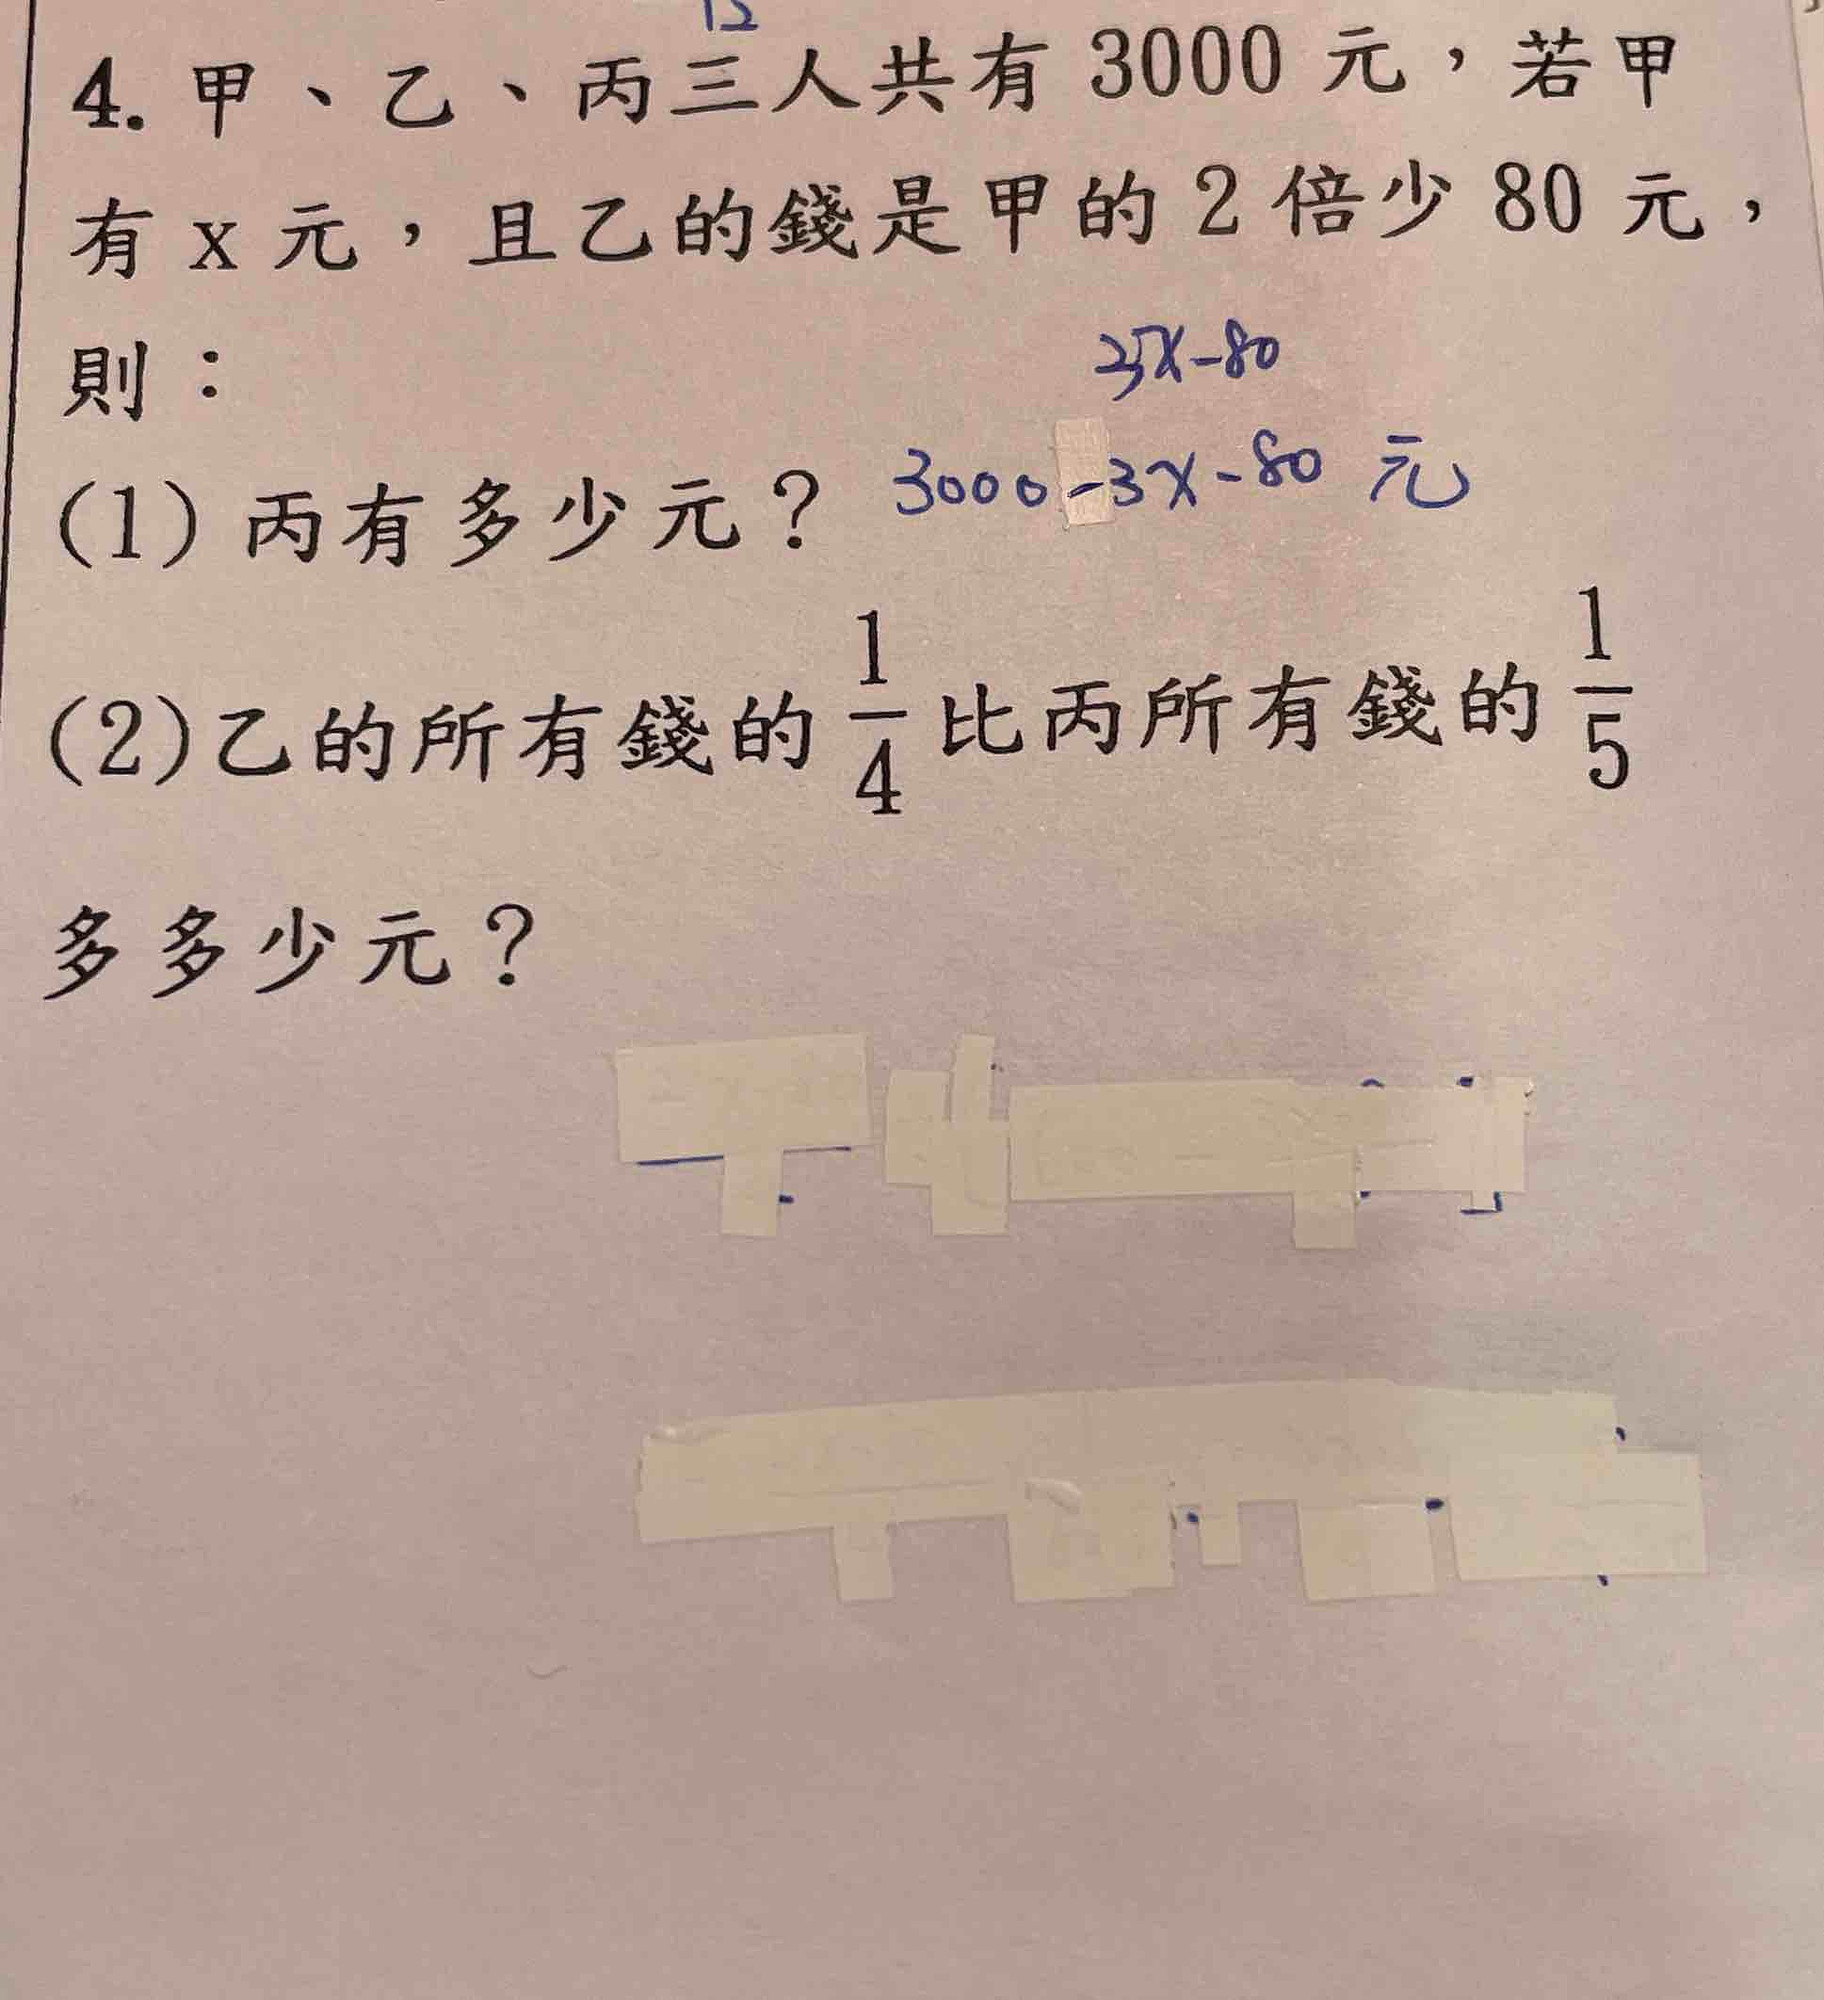 12
4. 甲、乙、丙三人共有 3000 元，若甲
有 x 元，且乙的錢是甲的 2 倍少 80 元，
則：
3x-80
(1) 丙有多少元？ 3000-3x-80 元
(2)乙的所有錢的 1/4 比丙所有錢的 1/5
多多少元？